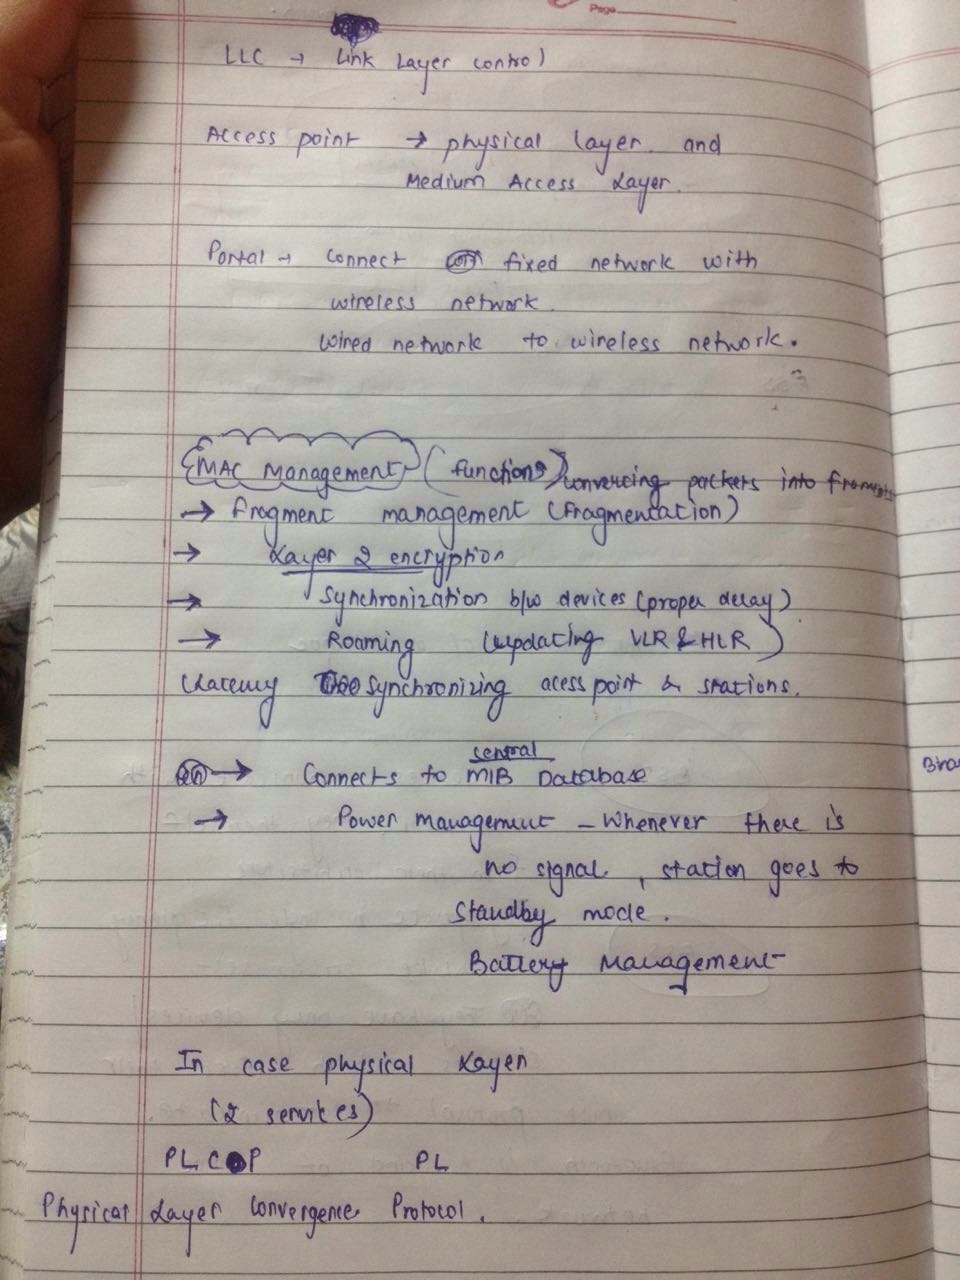 Page
LLC → Link Layer control
Access point → physical layer and
Medium Access Layer.
Portal → connect fixed network with
wireless network.
wired network to wireless network.
MAC Management (functions) converting packets into
→ fragment management (fragmentation)
→ Layer 2 encryption
→ Synchronization b/w devices (proper delay)
→ Roaming (updating VLR & HLR)
Synchronizing acess point & stations.
→ Connects to MIB Database
→ Power management – Whenever there is
no signal, station goes to
standby mode.
Battery Management
In case physical Layer
(2 services)
PLC P PL
Physical Layer Convergence Protocol.